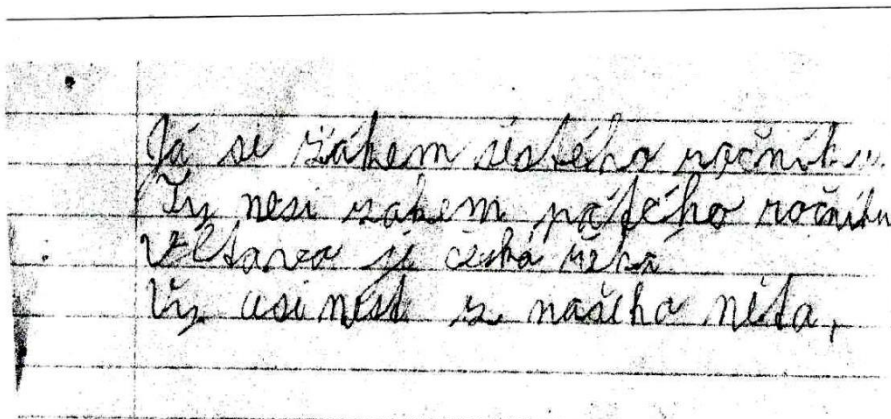 Já si žákem šestého ročníku.
Ty nesi žakem pátého ročníku
Vltava je česká řeka
Vy asi nest z našeho něta,